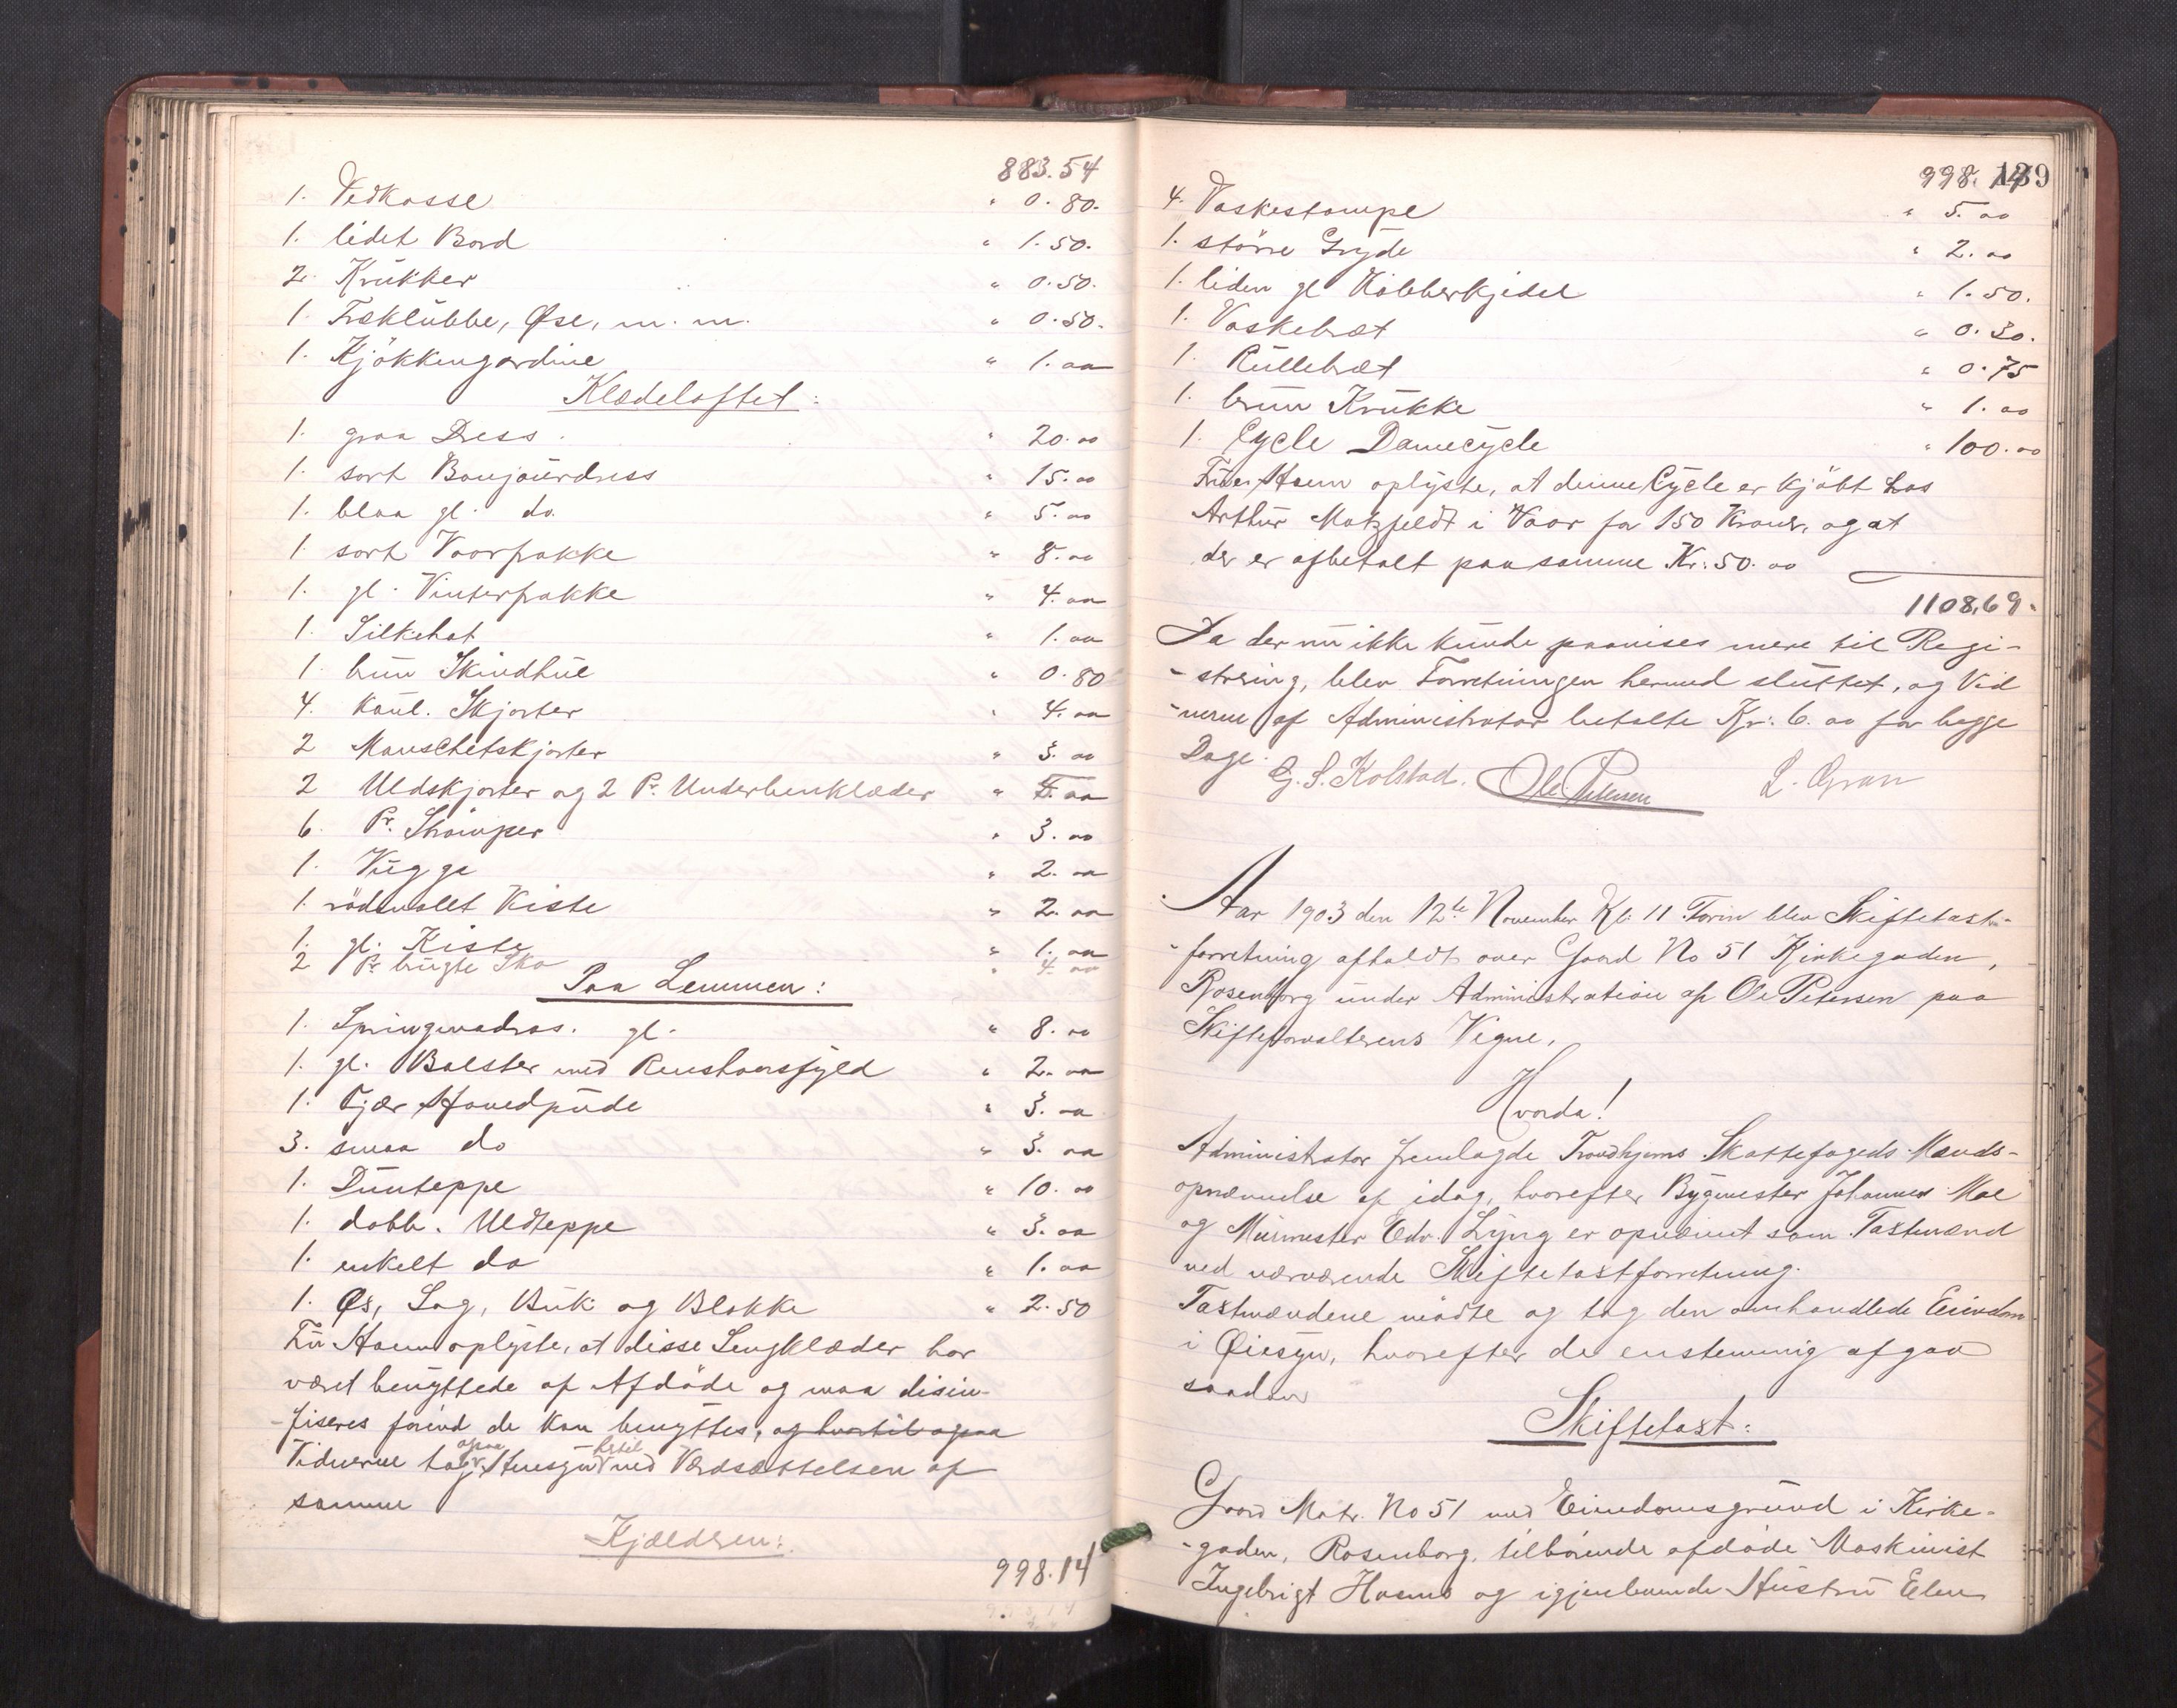 883.54
1. Vedkasse " 0.80.
1. lidet Bord " 1.50.
2. Krukker " 0.50.
1. Træklubbe, Øse, m. m. " 0.50.
1. Kjökkengardine " 1.00
Klædeloftet:
1. graa Dress. " 20.00
1. sort Bonjourdress " 15.00
1. blaa gl. do. " 5.00
1. sort Vaarfrakke " 8.00
1. gl. Vinterfrakke " 4.00
1. Silkehat " 1.00
1. brun Skindhue " 0.80
4. kaul. Skjorter " 4.00
2 Manschetskjorter " 3.00
2 Uldskjorter og 2 Pr. Underbenklæder " 5.00
6. Pr. Strömper " 3.00
1. Vugge " 2.00
1. rödmalet Kiste " 2.00
1. gl. Kiste " 1.00
2 Pr brugte Sko " 4.00
Paa Lemmen:
1. Springmadras. gl. " 8.00
1. gl. Bolster med Renshaarsfyld " 2.00
1. Fjær Hovedpude " 3.00
3. smaa do " 3.00
1. Dunteppe " 10.00
1. dobb. Uldteppe " 3.00
1. enkelt do " 1.00
1. Øx, Sag, Buk og Blokke " 2.50
Fru Haem oplyste, at disse Sengklæder har
været benyttede af Afdöde og maa disin-
-fiseres forind de kan benyttes, og hvortil ogsaa
Vidnerne tog ogsaa Hensyn hertil ved Værdsættelsen af
samme
Kjælderen:
998.14
998.14
139
4. Vaskestampe " 5.00
1. större Gryde " 2.00
1. liden gl Kobberkjedel " 1.50.
1. Vaskebræt " 0.30.
1. Rullebræt " 0.75
1. brun Krukke " 1.00
1. Cycle Damecycle " 100.00
Fruen Haem oplyste, at denne Cycle er kjöbt hos
Arthur Motzfeldt i Vaar for 150 Kroner, og at
der er afbetalt paa samme Kr. 50.00
1108,69.
Da der nu ikke kunde paavises mere til Regi-
-strering, blev Forretningen hermed sluttet, og Vid
-nerne af Administrator betalte Kr. 6.00 for begge
Dage.
G. S. Kolstad. Ole Petersen L. Gran
Aar 1903 den 12te November Kl. 11 Form blev Skiftetaxt-
-forretning afholdt over Gaard No 51 Kirkegaden,
Rosenborg under Administration af Ole Petersen paa
Skifteforvalterens Vegne,
Hvorda!
Administrator fremlagde Trondhjems Skattefogeds Mands-
opnævnelse af idag, hvorefter Bygmester Johannes Moe
og Murmester Edv. Lyng er opnævnt som Taxtmænd
ved nærværende Skiftetaxtforretning.
Taxtmændene mödte og tog den omhandlede Eiendom
i Öiesyn, hvorefter de enstemmig afgav
saadan
Skiftetaxt:
Gaard Matr. No 51 med Eiendomsgrund i Kirke-
-gaden, Rosenborg, tilhörende afdöde Maskinist
Ingebrigt Haems og igjenlevende Hustru Elen